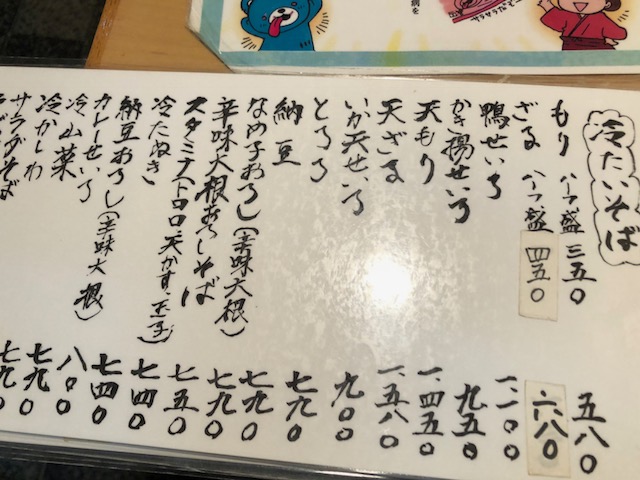 冷たいそば
もり ハーフ盛 三五〇 五八〇
ざる ハーフ盛 四五〇 六八〇
鴨せいろ 一、一〇〇
かき揚せいろ 九五〇
天もり 一、四五〇
天ざる 一、五八〇
いか天せいろ 九〇〇
とろろ 七九〇
納豆 七九〇
なめ子おろし(辛味大根) 七九〇
辛味大根おろしそば 七五〇
スタミナ(トロロ、天かす、玉子) 七四〇
冷たぬき 七四〇
納豆おろし(辛味大根) 八〇〇
カレーせいろ 七九〇
冷山菜 七九〇
冷かしわ
サラダそば